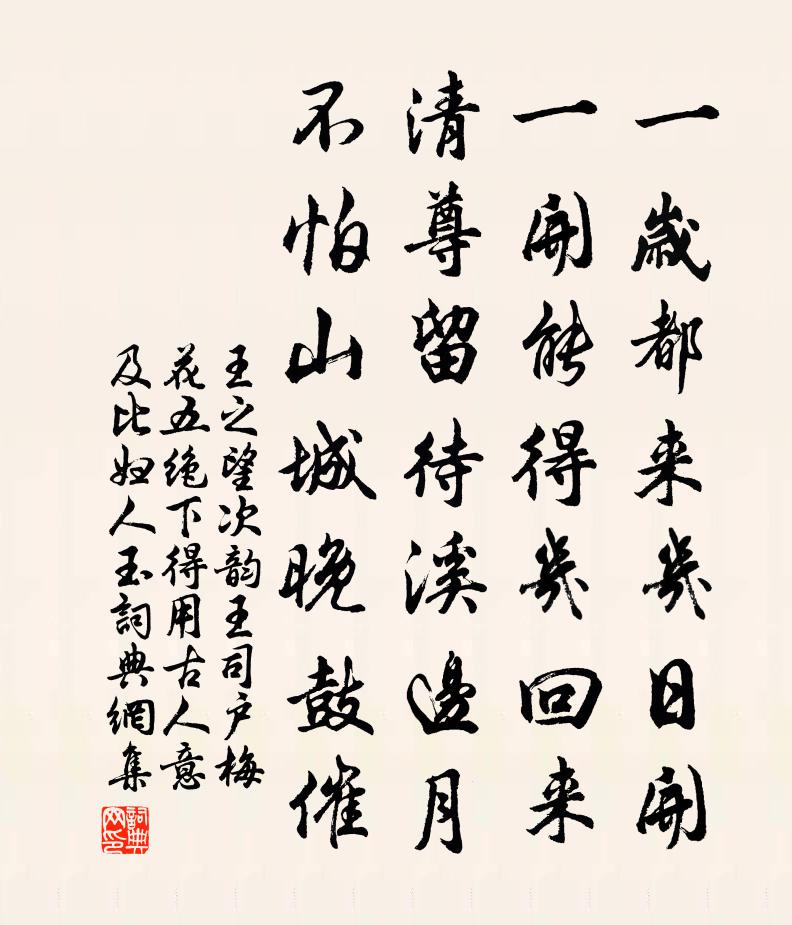 一歲都来幾日開
一開能得幾回来
清尊留待溪邊月
不怕山城晚鼓催
王之望次韵王司户梅
花五绝下得用古人意
及比妇人玉詞典網集
詞典
网印